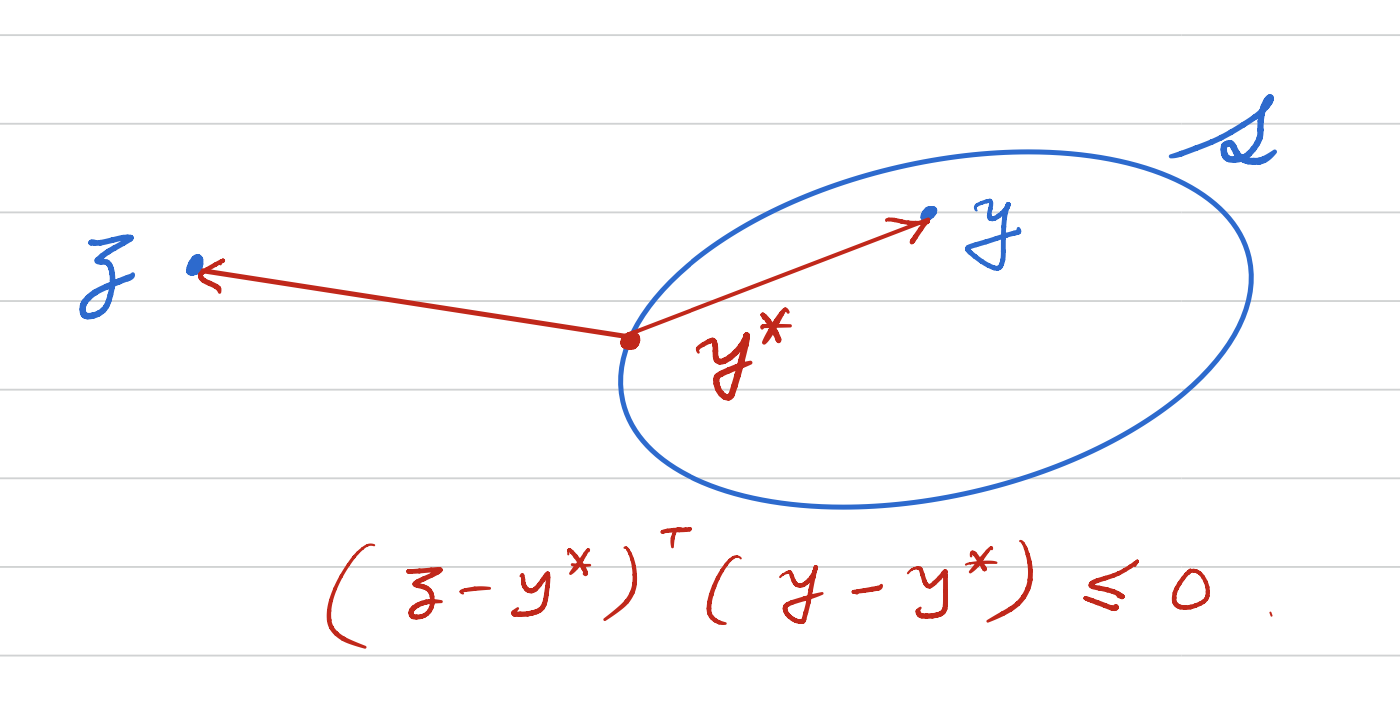 S
y
z
y*
(z - y*)ᵀ (y - y*) ≤ 0.